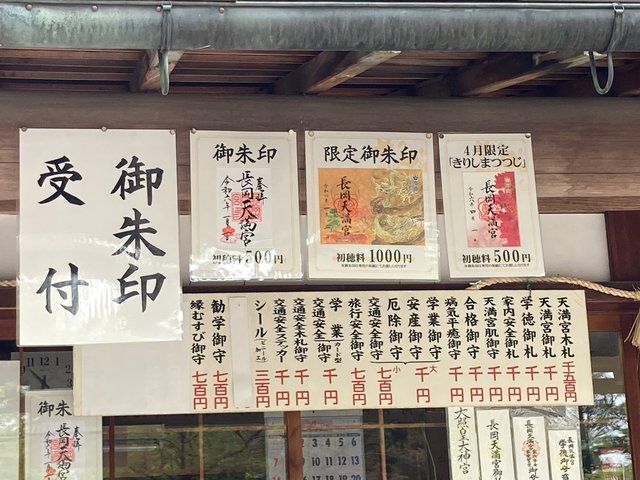 御朱印
受付
御朱印
奉拝
長岡天満宮
初穂料500円
限定御朱印
長岡天満宮
初穂料1000円
4月限定
「きりしまつつじ」
長岡天満宮
初穂料500円
天満宮木札 千五百円
天満宮御札 千円
学徳御札 千円
家内安全御札 千円
天満宮肌御守 千円
合格御守 千円
病気平癒御守 千円
学業御守 大 千円
安産御守 千円
厄除御守 小 七百円
交通安全御守 七百円
旅行安全御守 七百円
学業 カード型
交通安全御守 千円
交通安全木札御守 千円
交通安全ステッカー 千円
シール 三百円
勧学御守 七百円
縁むすび御守 七百円
御朱
奉拝
長岡天満宮
11 12 1
大照皇大神宮
長岡天満宮
学徳御守
3 4 5 6
10 11 12 13
17 18 19 20